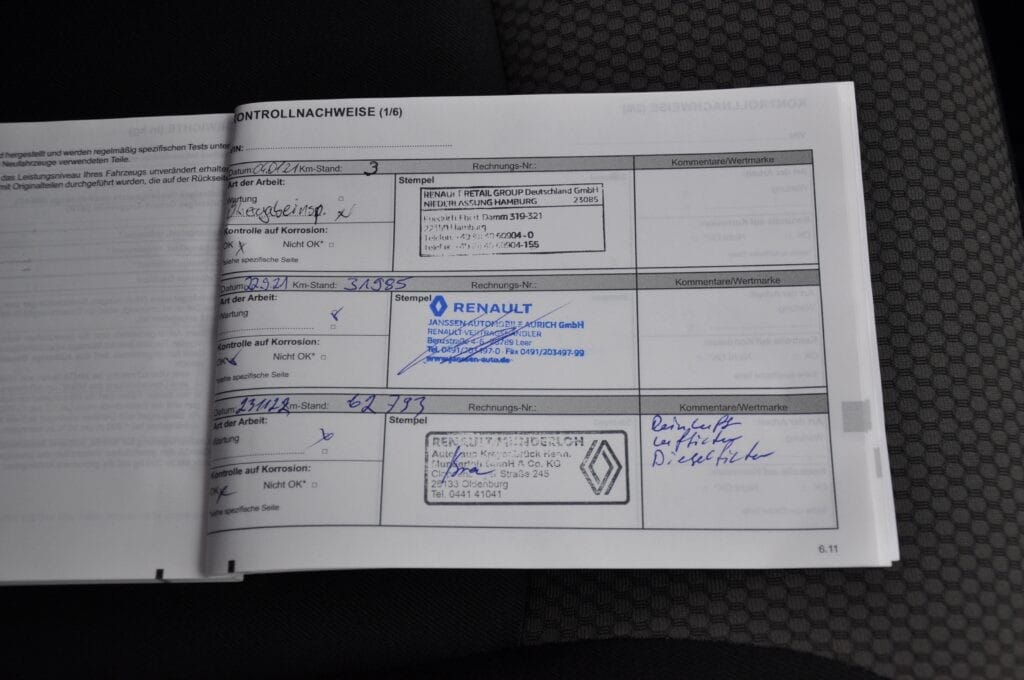 hergestellt und werden regelmäßig spezifischen Tests unter
Neufahrzeuge verwendeten Teile.
das Leistungsniveau Ihres Fahrzeugs unverändert erhalten
mit Originalteilen durchgeführt wurden, die auf der Rückseite
KONTROLLNACHWEISE (1/6)
Datum: Km-Stand: 3 Rechnungs-Nr.: Kommentare/Wertmarke
Art der Arbeit:
Wartung
Übergabeinsp. x
Kontrolle auf Korrosion:
OK x Nicht OK*
*siehe spezifische Seite
Stempel
RENAULT RETAIL GROUP Deutschland GmbH
NIEDERLASSUNG HAMBURG 23085
Friedrich-Ebert-Damm 319-321
Hamburg
Telefon: +49 (0) 40 60904-0
Telefax: +49 (0) 40 60904-155
Datum: 22.9.21 Km-Stand: 31985 Rechnungs-Nr.: Kommentare/Wertmarke
Art der Arbeit:
Wartung x
Kontrolle auf Korrosion:
OK Nicht OK*
*siehe spezifische Seite
Stempel
RENAULT
JANSSEN AUTOMOBILE AURICH GmbH
RENAULT-VERTRAGSHÄNDLER
Benzstraße 4-6 · 26789 Leer
Tel. 0491/203497-0 · Fax 0491/203497-99
www.janssen-auto.de
Datum: 231122 Km-Stand: 62 793 Rechnungs-Nr.: Kommentare/Wertmarke
Art der Arbeit:
Wartung x
Kontrolle auf Korrosion:
OK x Nicht OK*
*siehe spezifische Seite
Stempel
RENAULT MUNDERLOH
Autohaus Kreyenbrück Henn.
Munderloh GmbH & Co. KG
Straße 245
26133 Oldenburg
Tel. 0441 41041
Reinluft
Luftfilter
Dieselfilter
6.11